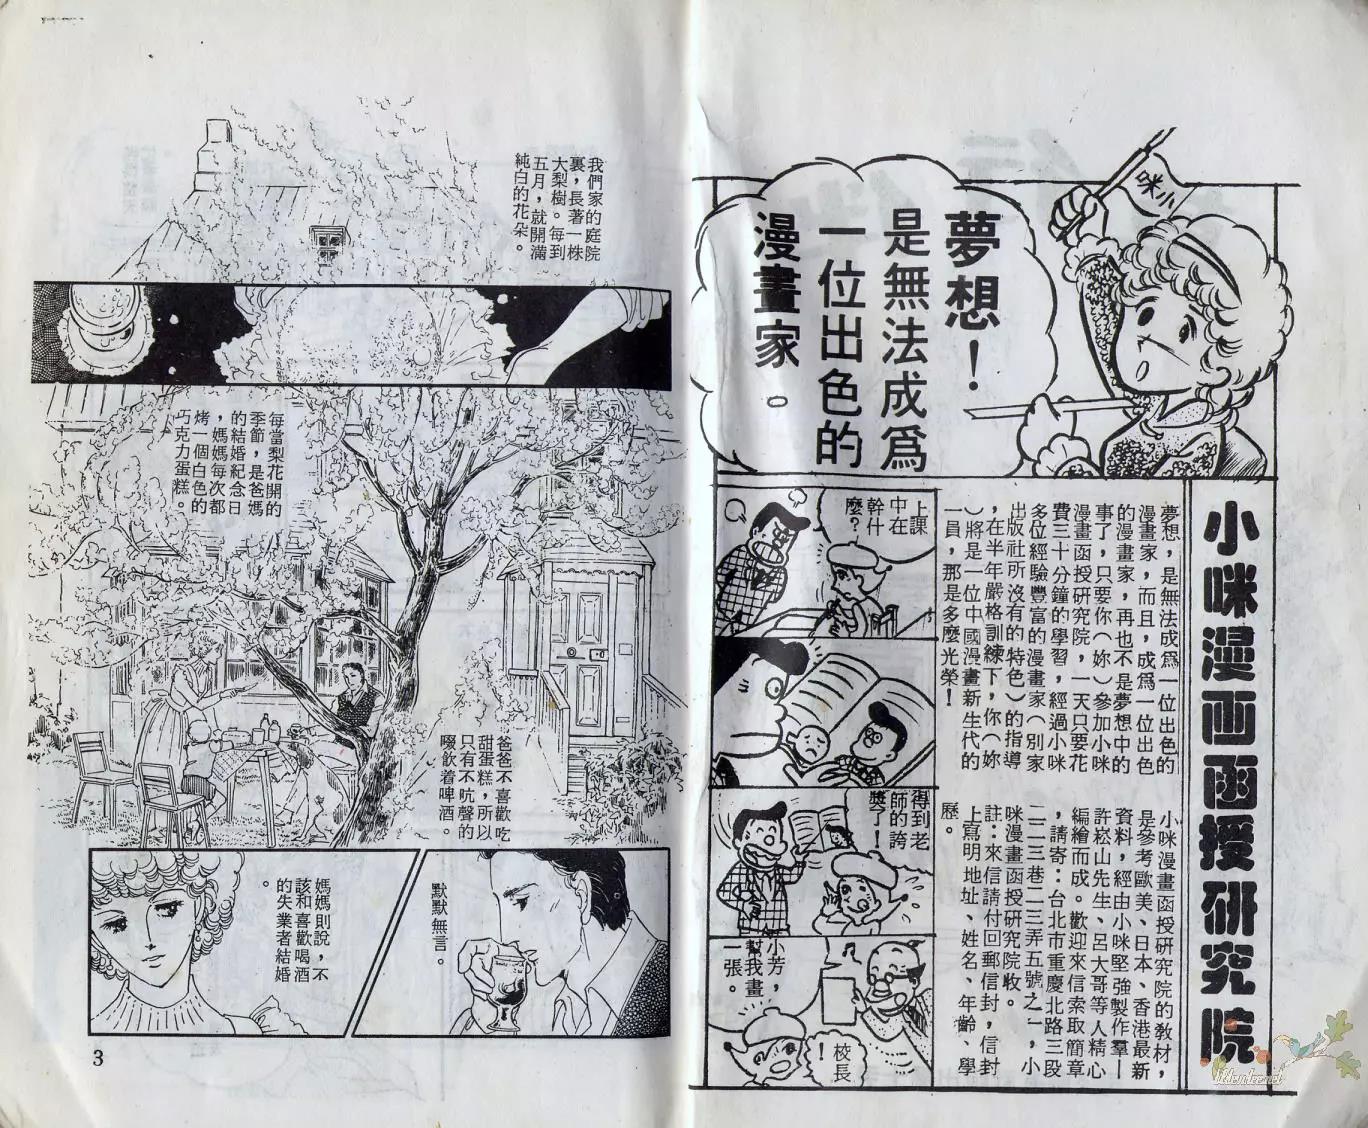 夢想！
是無法成爲
一位出色的
漫畫家。
小咪漫画函授研究院
夢想，是無法成爲一位出色的
漫畫家，而且，成爲一位出色
的漫畫家，再也不是夢想中的
事了，只要你（妳）參加小咪
漫畫函授研究院，一天只要花
費三十分鐘的學習，經過小咪
多位經驗豐富的漫畫家（別家
出版社所沒有的特色）的指導
，在半年嚴格訓練下，你（妳
）將是一位中國漫畫新生代的
一員，那是多麼光榮！
小咪漫畫函授研究院的教材，
是參考歐美、日本、香港最新
資料，經由小咪堅強製作羣—
許崧山先生、呂大哥等人精心
編繪而成。歡迎來信索取簡章
，請寄：台北市重慶北路三段
二二三巷二三弄五號之一，小
咪漫畫函授研究院收。
註：來信請付回郵信封，信封
上寫明地址、姓名、年齡、學
歷。
上課
中在
幹什
麼？
得到老
師的誇
獎了！
小芳，
幫我畫
一張。
校長
！
我們家的庭院
裏，長著一株
大梨樹。每到
五月，就開滿
純白的花朵。
每當梨花開的
季節，是爸媽
的結婚紀念日
，媽媽每次都
烤一個白色的
巧克力蛋糕。
爸爸不喜歡吃
甜蛋糕，所以
只有不吭聲的
啜飲着啤酒。
默默無言。
媽媽則說，不
該和喜歡喝酒
的失業者結婚
。
3